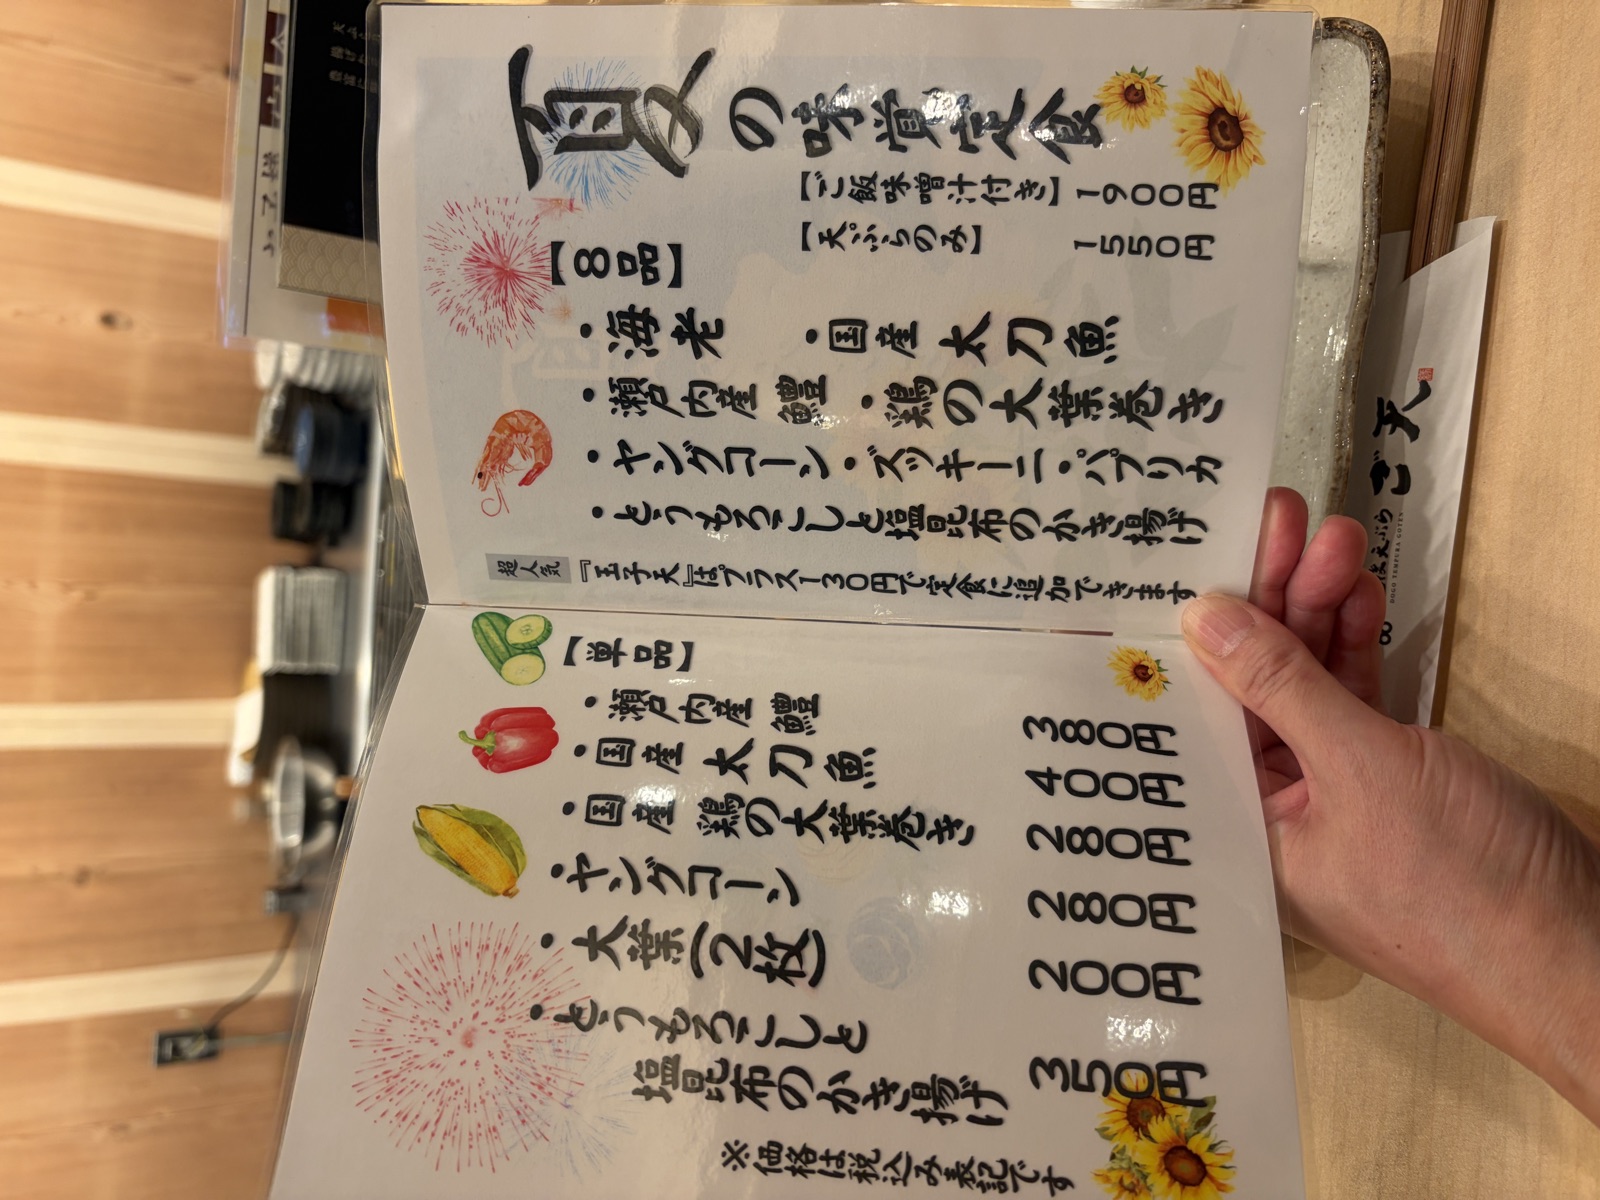 夏の味覚定食
【ご飯味噌汁付き】 1900円
【天ぷらのみ】 1550円
【8品】
・海老 ・国産 太刀魚
・瀬戸内産 鱧 ・鶏の大葉巻き
・ヤングコーン・ズッキーニ・パプリカ
・とうもろこしと塩昆布のかき揚げ
超人気 『玉子天』はプラス130円で定食に追加できます
【単品】
・瀬戸内産 鱧 380円
・国産 太刀魚 400円
・国産 鶏の大葉巻き 280円
・ヤングコーン 280円
・大葉(2枚) 200円
・とうもろこしと
塩昆布のかき揚げ 350円
※価格は税込み表記です
ご天
DOGO TEMPURA GOTEN